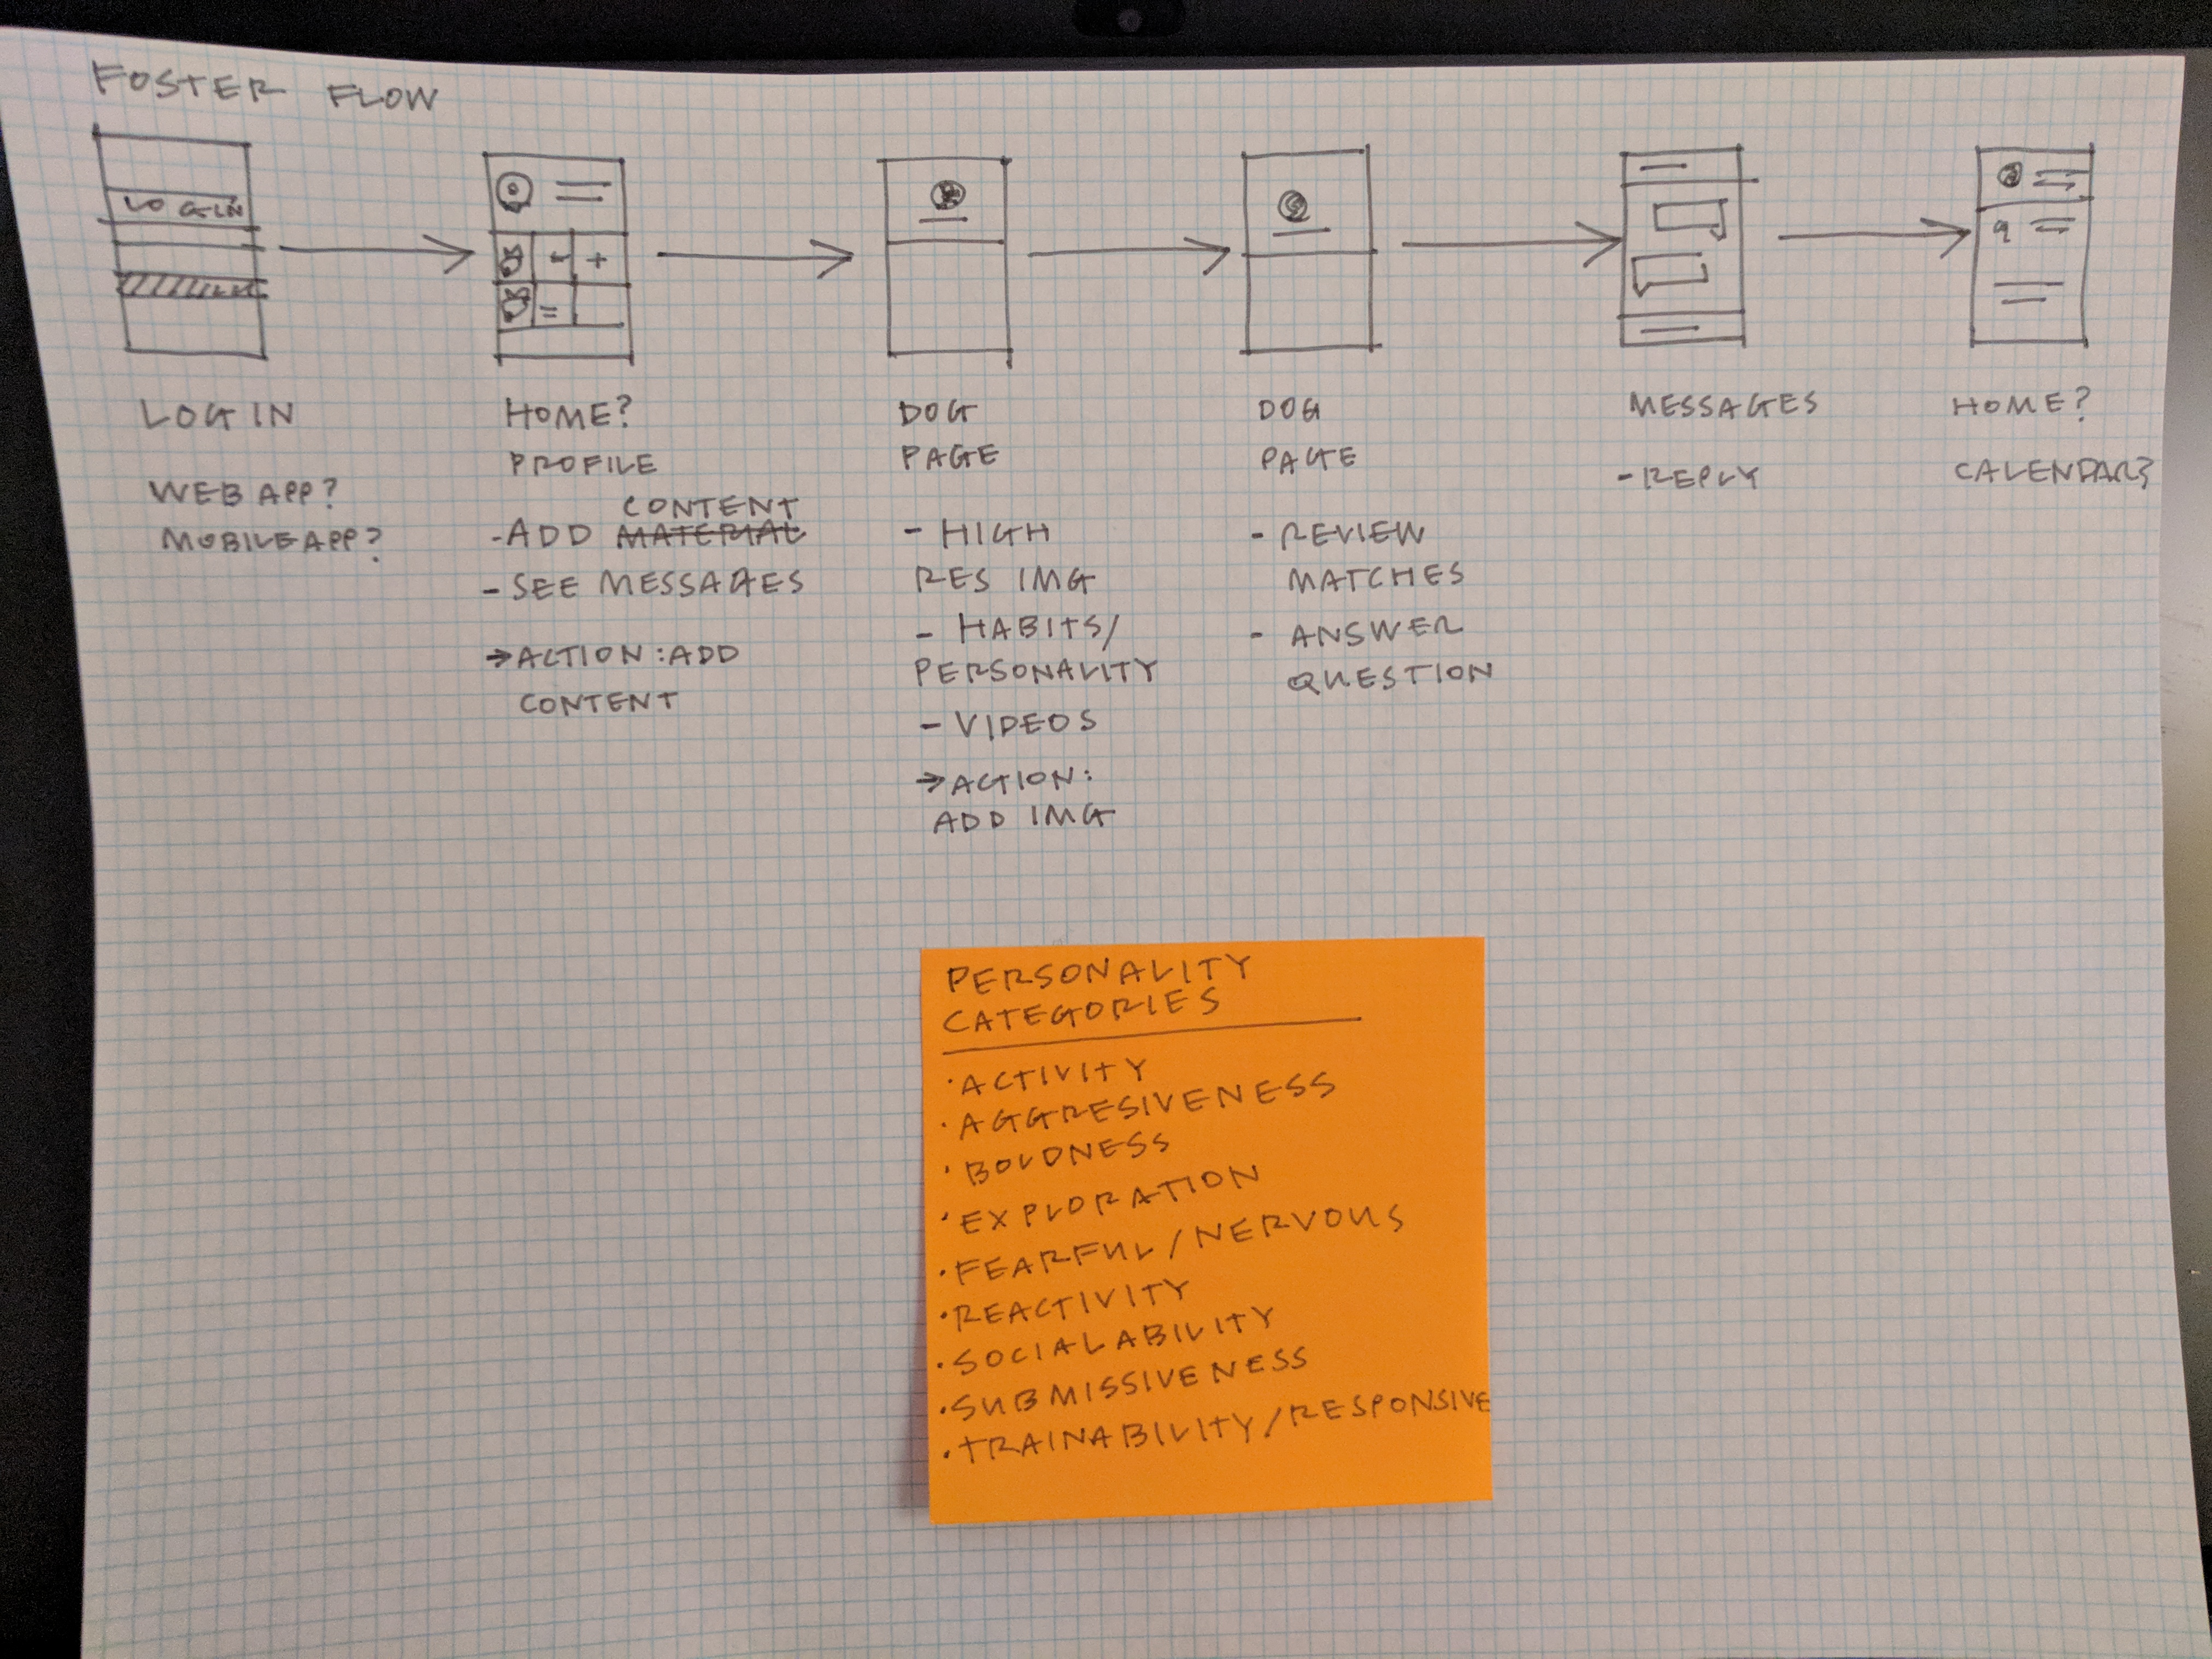 FOSTER FLOW
LOGIN
LOGIN
WEB APP?
MOBILE APP?
HOME?
PROFILE
CONTENT
-ADD MATERIAL
-SEE MESSAGES
→ACTION:ADD
CONTENT
DOG
PAGE
- HIGH
RES IMG
- HABITS/
PERSONALITY
- VIDEOS
→ACTION:
ADD IMG
DOG
PAGE
- REVIEW
MATCHES
- ANSWER
QUESTION
MESSAGES
-REPLY
HOME?
CALENDAR?
PERSONALITY
CATEGORIES
·ACTIVITY
·AGGRESIVENESS
·BOLDNESS
·EXPLORATION
·FEARFUL/NERVOUS
·REACTIVITY
·SOCIALABILITY
·SUBMISSIVENESS
·TRAINABILITY/RESPONSIVE